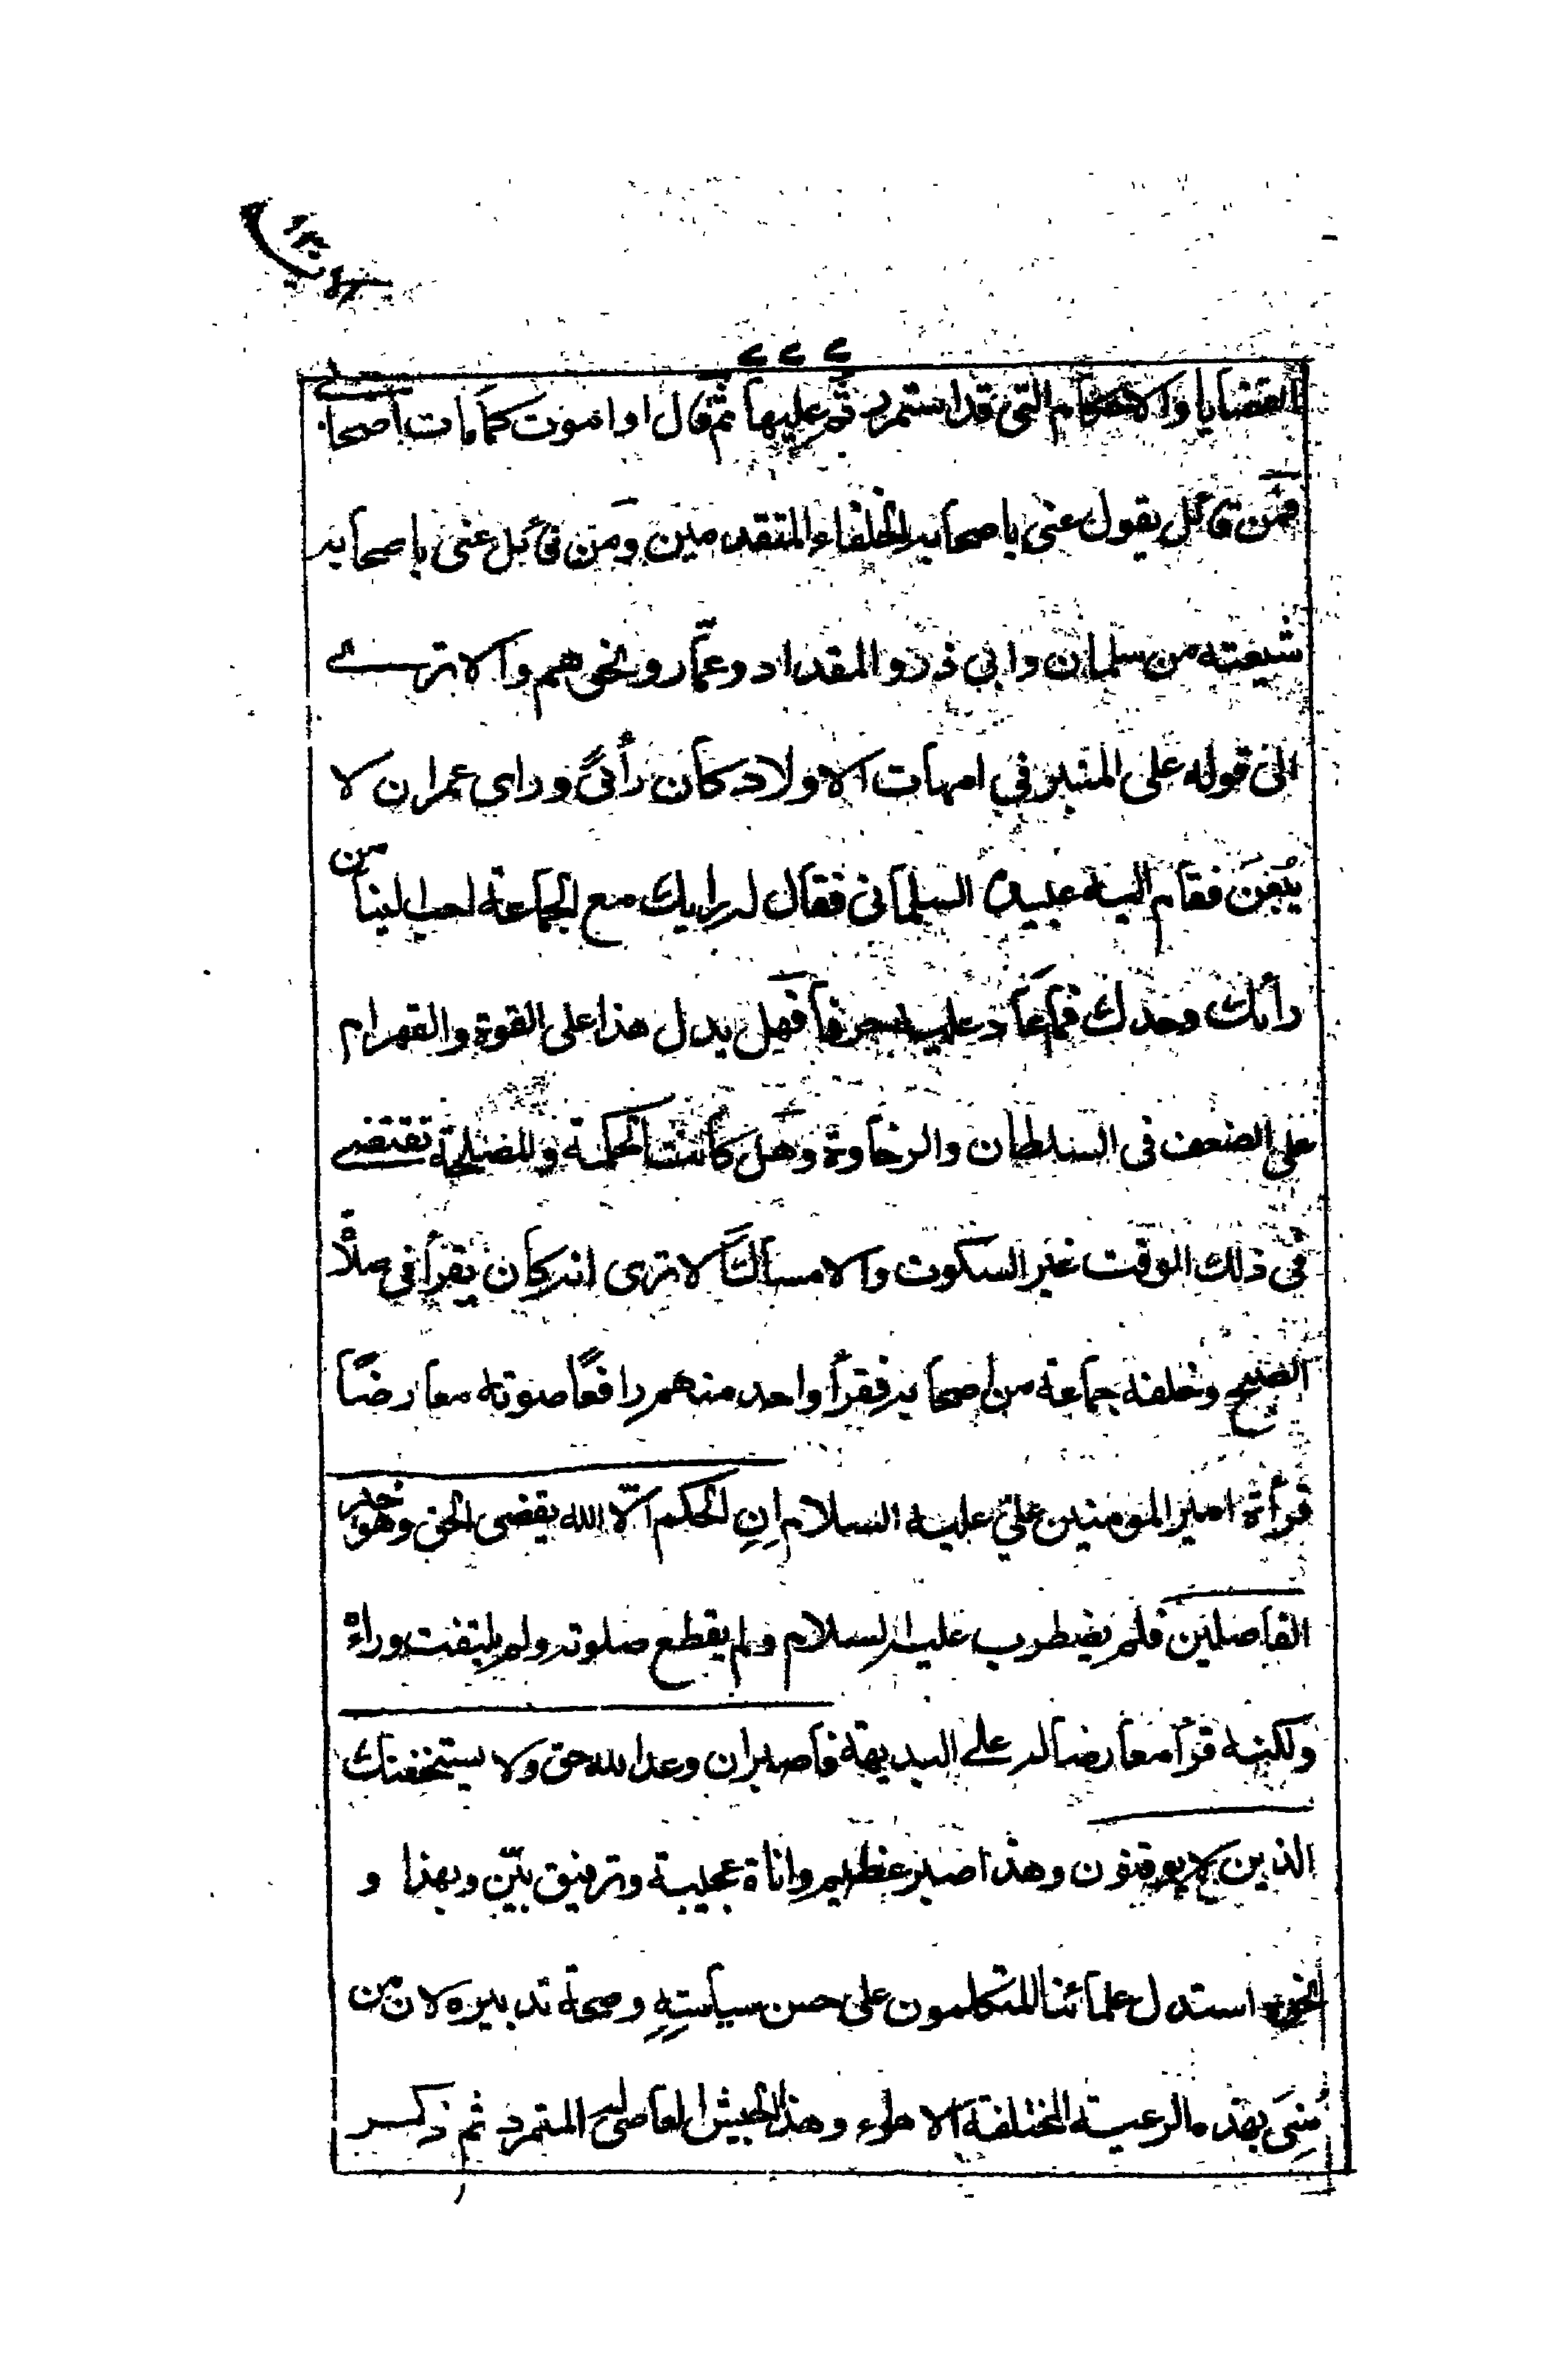 القضايا والاحكام التي قد استمررتم عليها ثم قال او اموت كما مات اصحابي
فمن قائل يقول عنى باصحابه الخلفاء المتقدمين ومن قائل عنى باصحابه
شيعته من سلمان وابي ذر والمقداد وعمّار ونحوهم والا ترى
الى قوله على المنبر في امهات الاولاد كان رأئي وراى عمر ان لا
يبعن فقام اليه عبيدة السلماني فقال له رايك مع الجماعة احب الينا من
رأيك وحدك فما عاد عليه حرفا فهل يدل هذا على القوة والقهر ام
على الضعف في السلطان والرخاوة وهل كانت الحكمة والمصلحة تقتضي
في ذلك الوقت غير السكوت والامساك الا ترى انه كان يقرأ في صلاة
الصبح وخلفه جماعة من اصحابه فقرأ واحد منهم رافعًا صوته معارضًا
قرأة امير المومنين عليّ عليه السلام اِنِ الحكم الّا لله يقضى الحق وهو خير
الفاصلين فلم يضطرب عليه السلام ولم يقطع صلوته ولم يلتفت وراءه
ولكنه قرأ معارضا له على البديهة فاصبر ان وعد الله حق ولا يستخفنك
الذين لا يوقنون وهذا صبر عظيم واناة عجيبة وترفيق بيّن وبهذا و
نحوه استدل علمائنا المتكلمون على حسن سياستهِ وصحة تدبيره لان من
مُنِيَ بهذه الرعية المختلفة الاهواء وهذا الجيش العاصي له المتمرد ثم ذكر